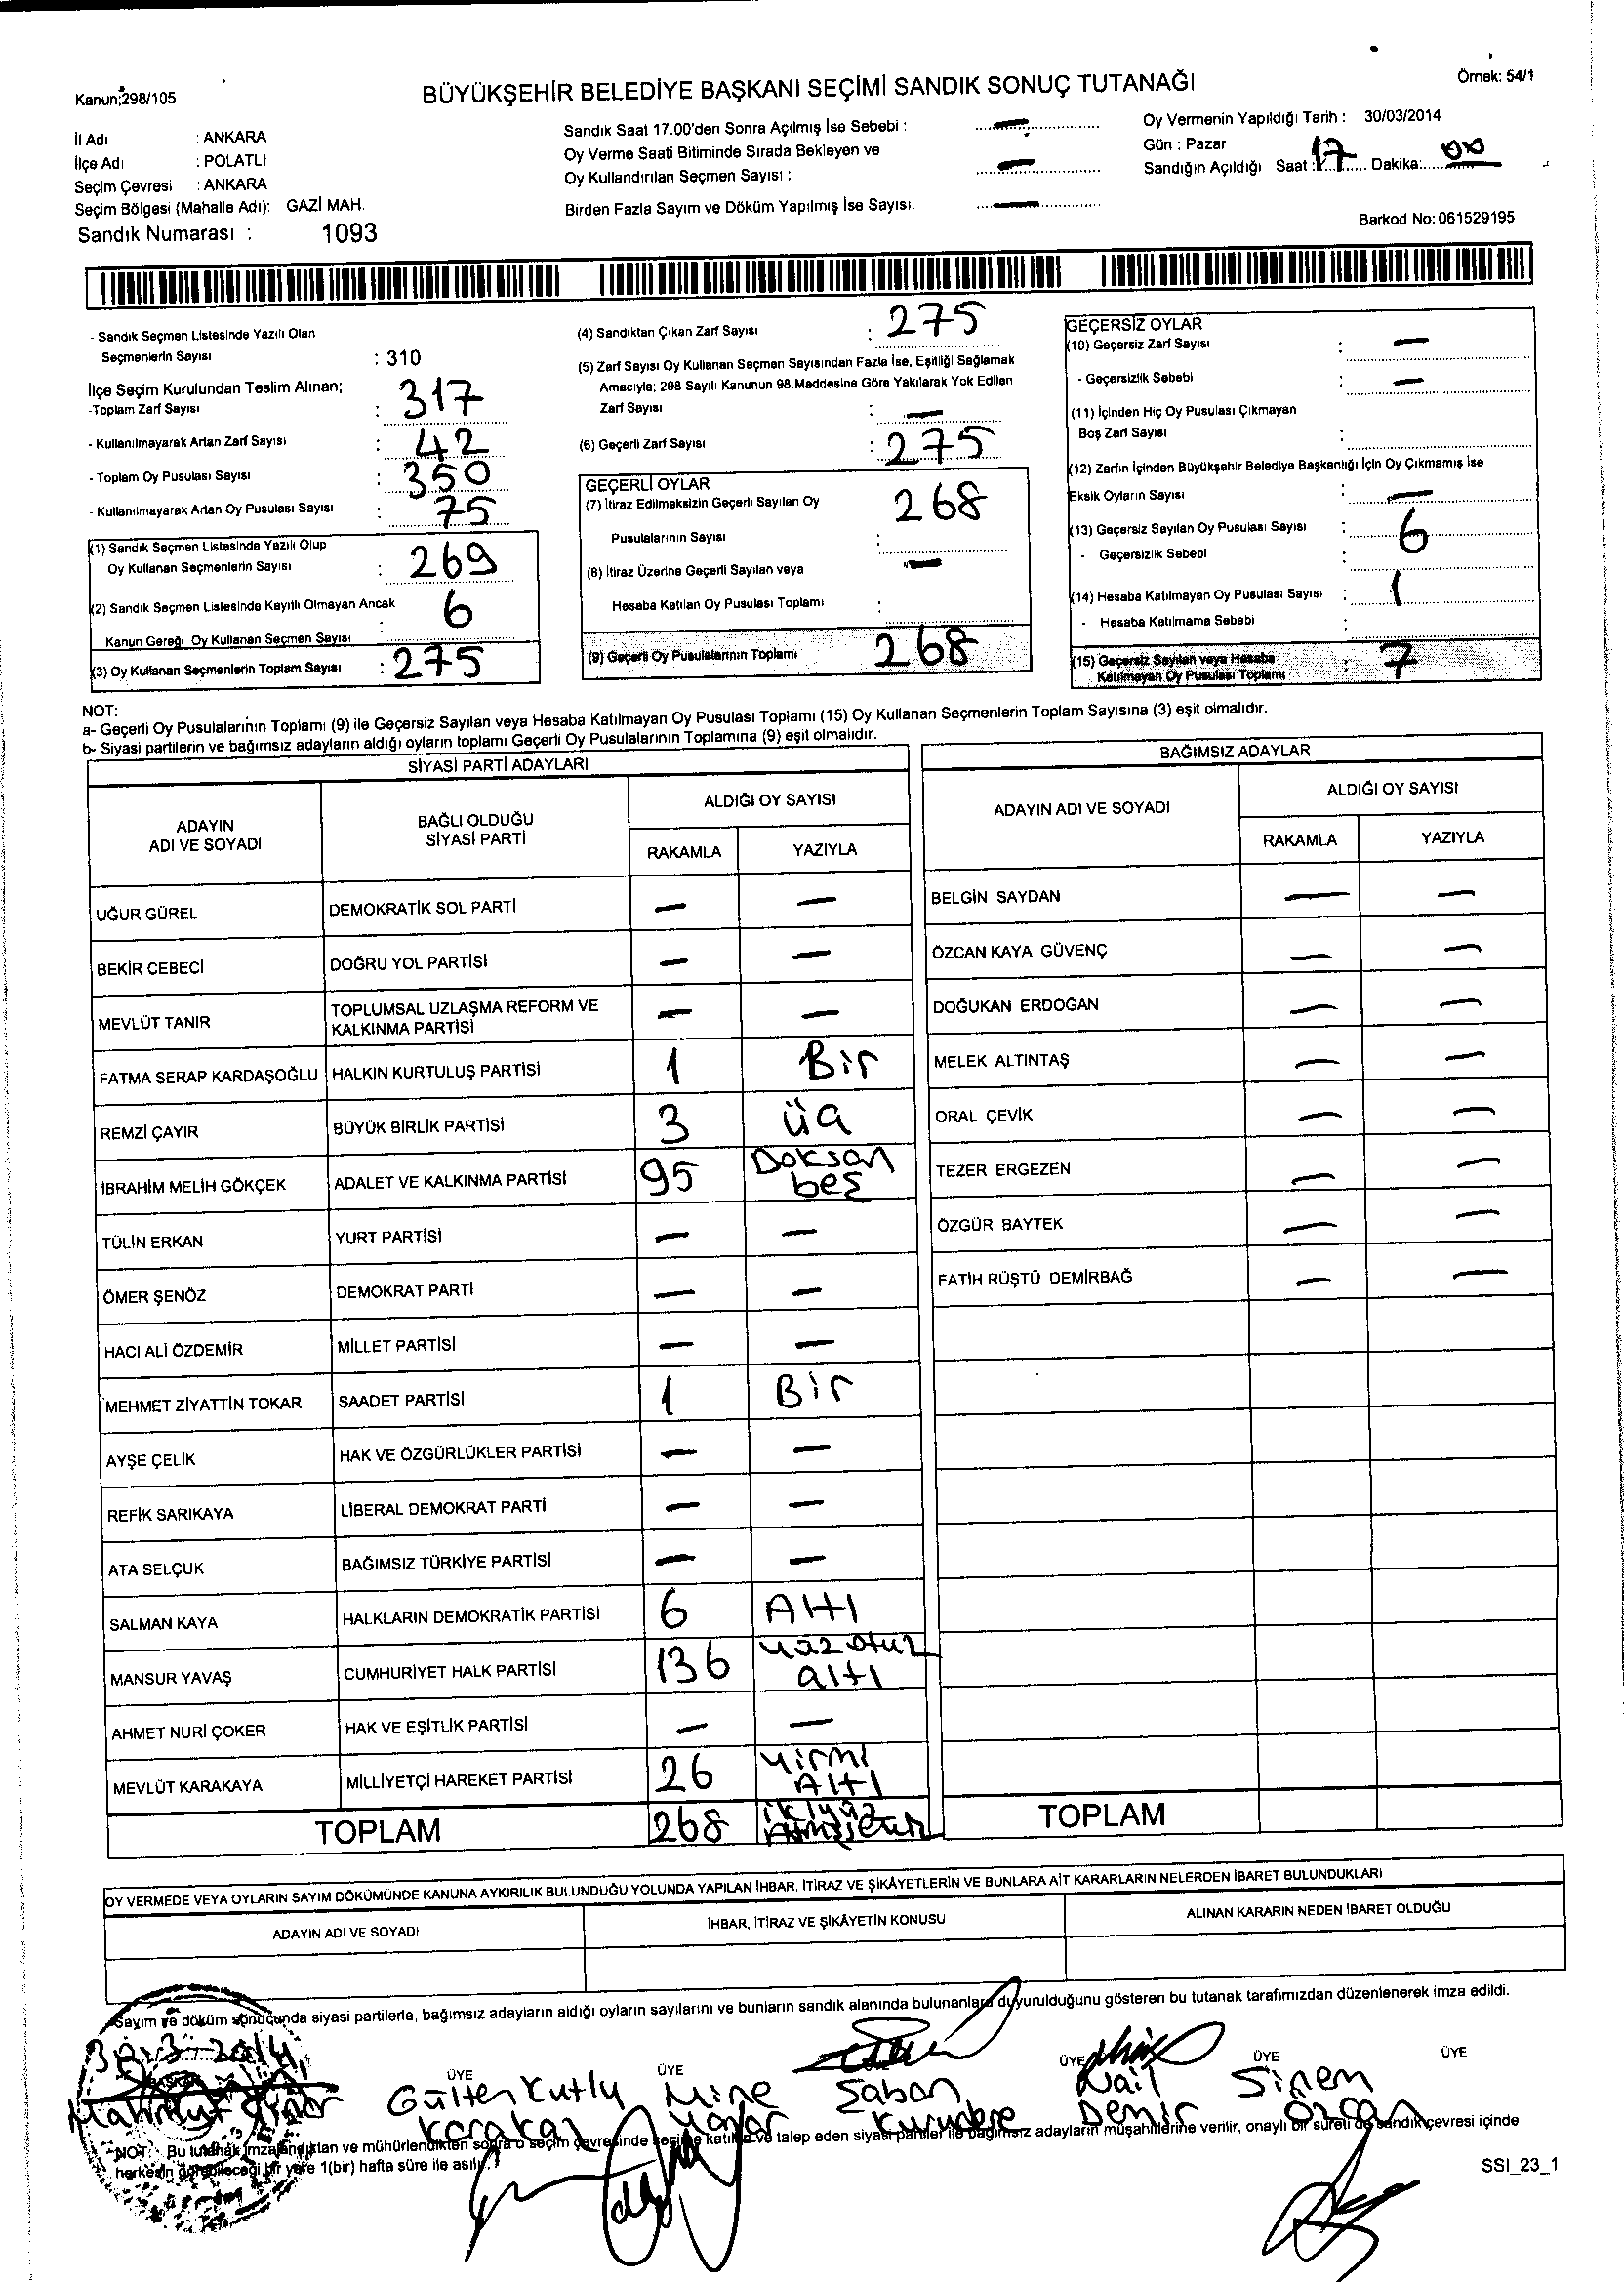 Kanun:298/105
BÜYÜKŞEHİR BELEDİYE BAŞKANI SEÇİMİ SANDIK SONUÇ TUTANAĞI
Örnek: 54/1
İl Adı : ANKARA
İlçe Adı : POLATLI
Seçim Çevresi : ANKARA
Seçim Bölgesi (Mahalle Adı): GAZİ MAH.
Sandık Numarası : 1093
Sandık Saat 17.00'den Sonra Açılmış İse Sebebi : —
Oy Verme Saati Bitiminde Sırada Bekleyen ve
Oy Kullandırılan Seçmen Sayısı : —
Birden Fazla Sayım ve Döküm Yapılmış İse Sayısı: —
Oy Vermenin Yapıldığı Tarih : 30/03/2014
Gün : Pazar
Sandığın Açıldığı Saat : 17 Dakika: 00
Barkod No: 061529195
- Sandık Seçmen Listesinde Yazılı Olan
Seçmenlerin Sayısı : 310
İlçe Seçim Kurulundan Teslim Alınan;
-Toplam Zarf Sayısı : 317
- Kullanılmayarak Artan Zarf Sayısı : 42
- Toplam Oy Pusulası Sayısı : 350
- Kullanılmayarak Artan Oy Pusulası Sayısı : 75
(1) Sandık Seçmen Listesinde Yazılı Olup
Oy Kullanan Seçmenlerin Sayısı : 269
(2) Sandık Seçmen Listesinde Kayıtlı Olmayan Ancak
Kanun Gereği Oy Kullanan Seçmen Sayısı : 6
(3) Oy Kullanan Seçmenlerin Toplam Sayısı : 275
(4) Sandıktan Çıkan Zarf Sayısı : 275
(5) Zarf Sayısı Oy Kullanan Seçmen Sayısından Fazla İse, Eşitliği Sağlamak
Amacıyla; 298 Sayılı Kanunun 98.Maddesine Göre Yakılarak Yok Edilen
Zarf Sayısı : —
(6) Geçerli Zarf Sayısı : 275
GEÇERLİ OYLAR
(7) İtiraz Edilmeksizin Geçerli Sayılan Oy
Pusulalarının Sayısı : 268
(8) İtiraz Üzerine Geçerli Sayılan veya
Hesaba Katılan Oy Pusulası Toplamı : —
(9) Geçerli Oy Pusulalarının Toplamı 268
GEÇERSİZ OYLAR
(10) Geçersiz Zarf Sayısı : —
- Geçersizlik Sebebi : —
(11) İçinden Hiç Oy Pusulası Çıkmayan
Boş Zarf Sayısı :
(12) Zarfın İçinden Büyükşehir Belediye Başkanlığı İçin Oy Çıkmamış İse
Eksik Oyların Sayısı : —
(13) Geçersiz Sayılan Oy Pusulası Sayısı : 6
- Geçersizlik Sebebi :
(14) Hesaba Katılmayan Oy Pusulası Sayısı : 1
- Hesaba Katılmama Sebebi :
(15) Geçersiz Sayılan veya Hesaba
Katılmayan Oy Pusulası Toplamı : 7
NOT:
a- Geçerli Oy Pusulalarının Toplamı (9) ile Geçersiz Sayılan veya Hesaba Katılmayan Oy Pusulası Toplamı (15) Oy Kullanan Seçmenlerin Toplam Sayısına (3) eşit olmalıdır.
b- Siyasi partilerin ve bağımsız adayların aldığı oyların toplamı Geçerli Oy Pusulalarının Toplamına (9) eşit olmalıdır.
SİYASİ PARTİ ADAYLARI
ADAYIN ADI VE SOYADI
BAĞLI OLDUĞU SİYASİ PARTİ
ALDIĞI OY SAYISI
RAKAMLA YAZIYLA
UĞUR GÜREL DEMOKRATİK SOL PARTİ — —
BEKİR CEBECİ DOĞRU YOL PARTİSİ — —
MEVLÜT TANIR TOPLUMSAL UZLAŞMA REFORM VE KALKINMA PARTİSİ — —
FATMA SERAP KARDAŞOĞLU HALKIN KURTULUŞ PARTİSİ 1 Bir
REMZİ ÇAYIR BÜYÜK BİRLİK PARTİSİ 3 üç
İBRAHİM MELİH GÖKÇEK ADALET VE KALKINMA PARTİSİ 95 Doksan beş
TÜLİN ERKAN YURT PARTİSİ — —
ÖMER ŞENÖZ DEMOKRAT PARTİ — —
HACI ALİ ÖZDEMİR MİLLET PARTİSİ — —
MEHMET ZİYATTİN TOKAR SAADET PARTİSİ 1 Bir
AYŞE ÇELİK HAK VE ÖZGÜRLÜKLER PARTİSİ — —
REFİK SARIKAYA LİBERAL DEMOKRAT PARTİ — —
ATA SELÇUK BAĞIMSIZ TÜRKİYE PARTİSİ — —
SALMAN KAYA HALKLARIN DEMOKRATİK PARTİSİ 6 Altı
MANSUR YAVAŞ CUMHURİYET HALK PARTİSİ 136 yüz otuz altı
AHMET NURİ ÇOKER HAK VE EŞİTLİK PARTİSİ — —
MEVLÜT KARAKAYA MİLLİYETÇİ HAREKET PARTİSİ 26 Yirmi Altı
TOPLAM 268 ikiyüz
BAĞIMSIZ ADAYLAR
ADAYIN ADI VE SOYADI
ALDIĞI OY SAYISI
RAKAMLA YAZIYLA
BELGİN SAYDAN — —
ÖZCAN KAYA GÜVENÇ — —
DOĞUKAN ERDOĞAN — —
MELEK ALTINTAŞ — —
ORAL ÇEVİK — —
TEZER ERGEZEN — —
ÖZGÜR BAYTEK — —
FATİH RÜŞTÜ DEMİRBAĞ — —
TOPLAM
OY VERMEDE VEYA OYLARIN SAYIM DÖKÜMÜNDE KANUNA AYKIRILIK BULUNDUĞU YOLUNDA YAPILAN İHBAR, İTİRAZ VE ŞİKÂYETLERİN VE BUNLARA AİT KARARLARIN NELERDEN İBARET BULUNDUKLARI
ADAYIN ADI VE SOYADI İHBAR, İTİRAZ VE ŞİKÂYETİN KONUSU ALINAN KARARIN NEDEN İBARET OLDUĞU
Sayım ve döküm sonucunda siyasi partilerle, bağımsız adayların aldığı oyların sayılarını ve bunların sandık alanında bulunanlara duyurulduğunu gösteren bu tutanak tarafımızdan düzenlenerek imza edildi.
30.3.2014
ÜYE ÜYE ÜYE ÜYE ÜYE
Gülten Kutlu Mine Şaban Nail Sinem
Karakaz Kurudere Demir Özcan
NOT: Bu tutanak imzalandıktan ve mühürlendikten sonra o seçim çevresinde seçime katılan ve talep eden siyasi partiler ile bağımsız adayların müşahitlerine verilir, onaylı bir sureti de sandık çevresi içinde
herkesin görebileceği bir yere 1(bir) hafta süre ile asılır.
SSI_23_1